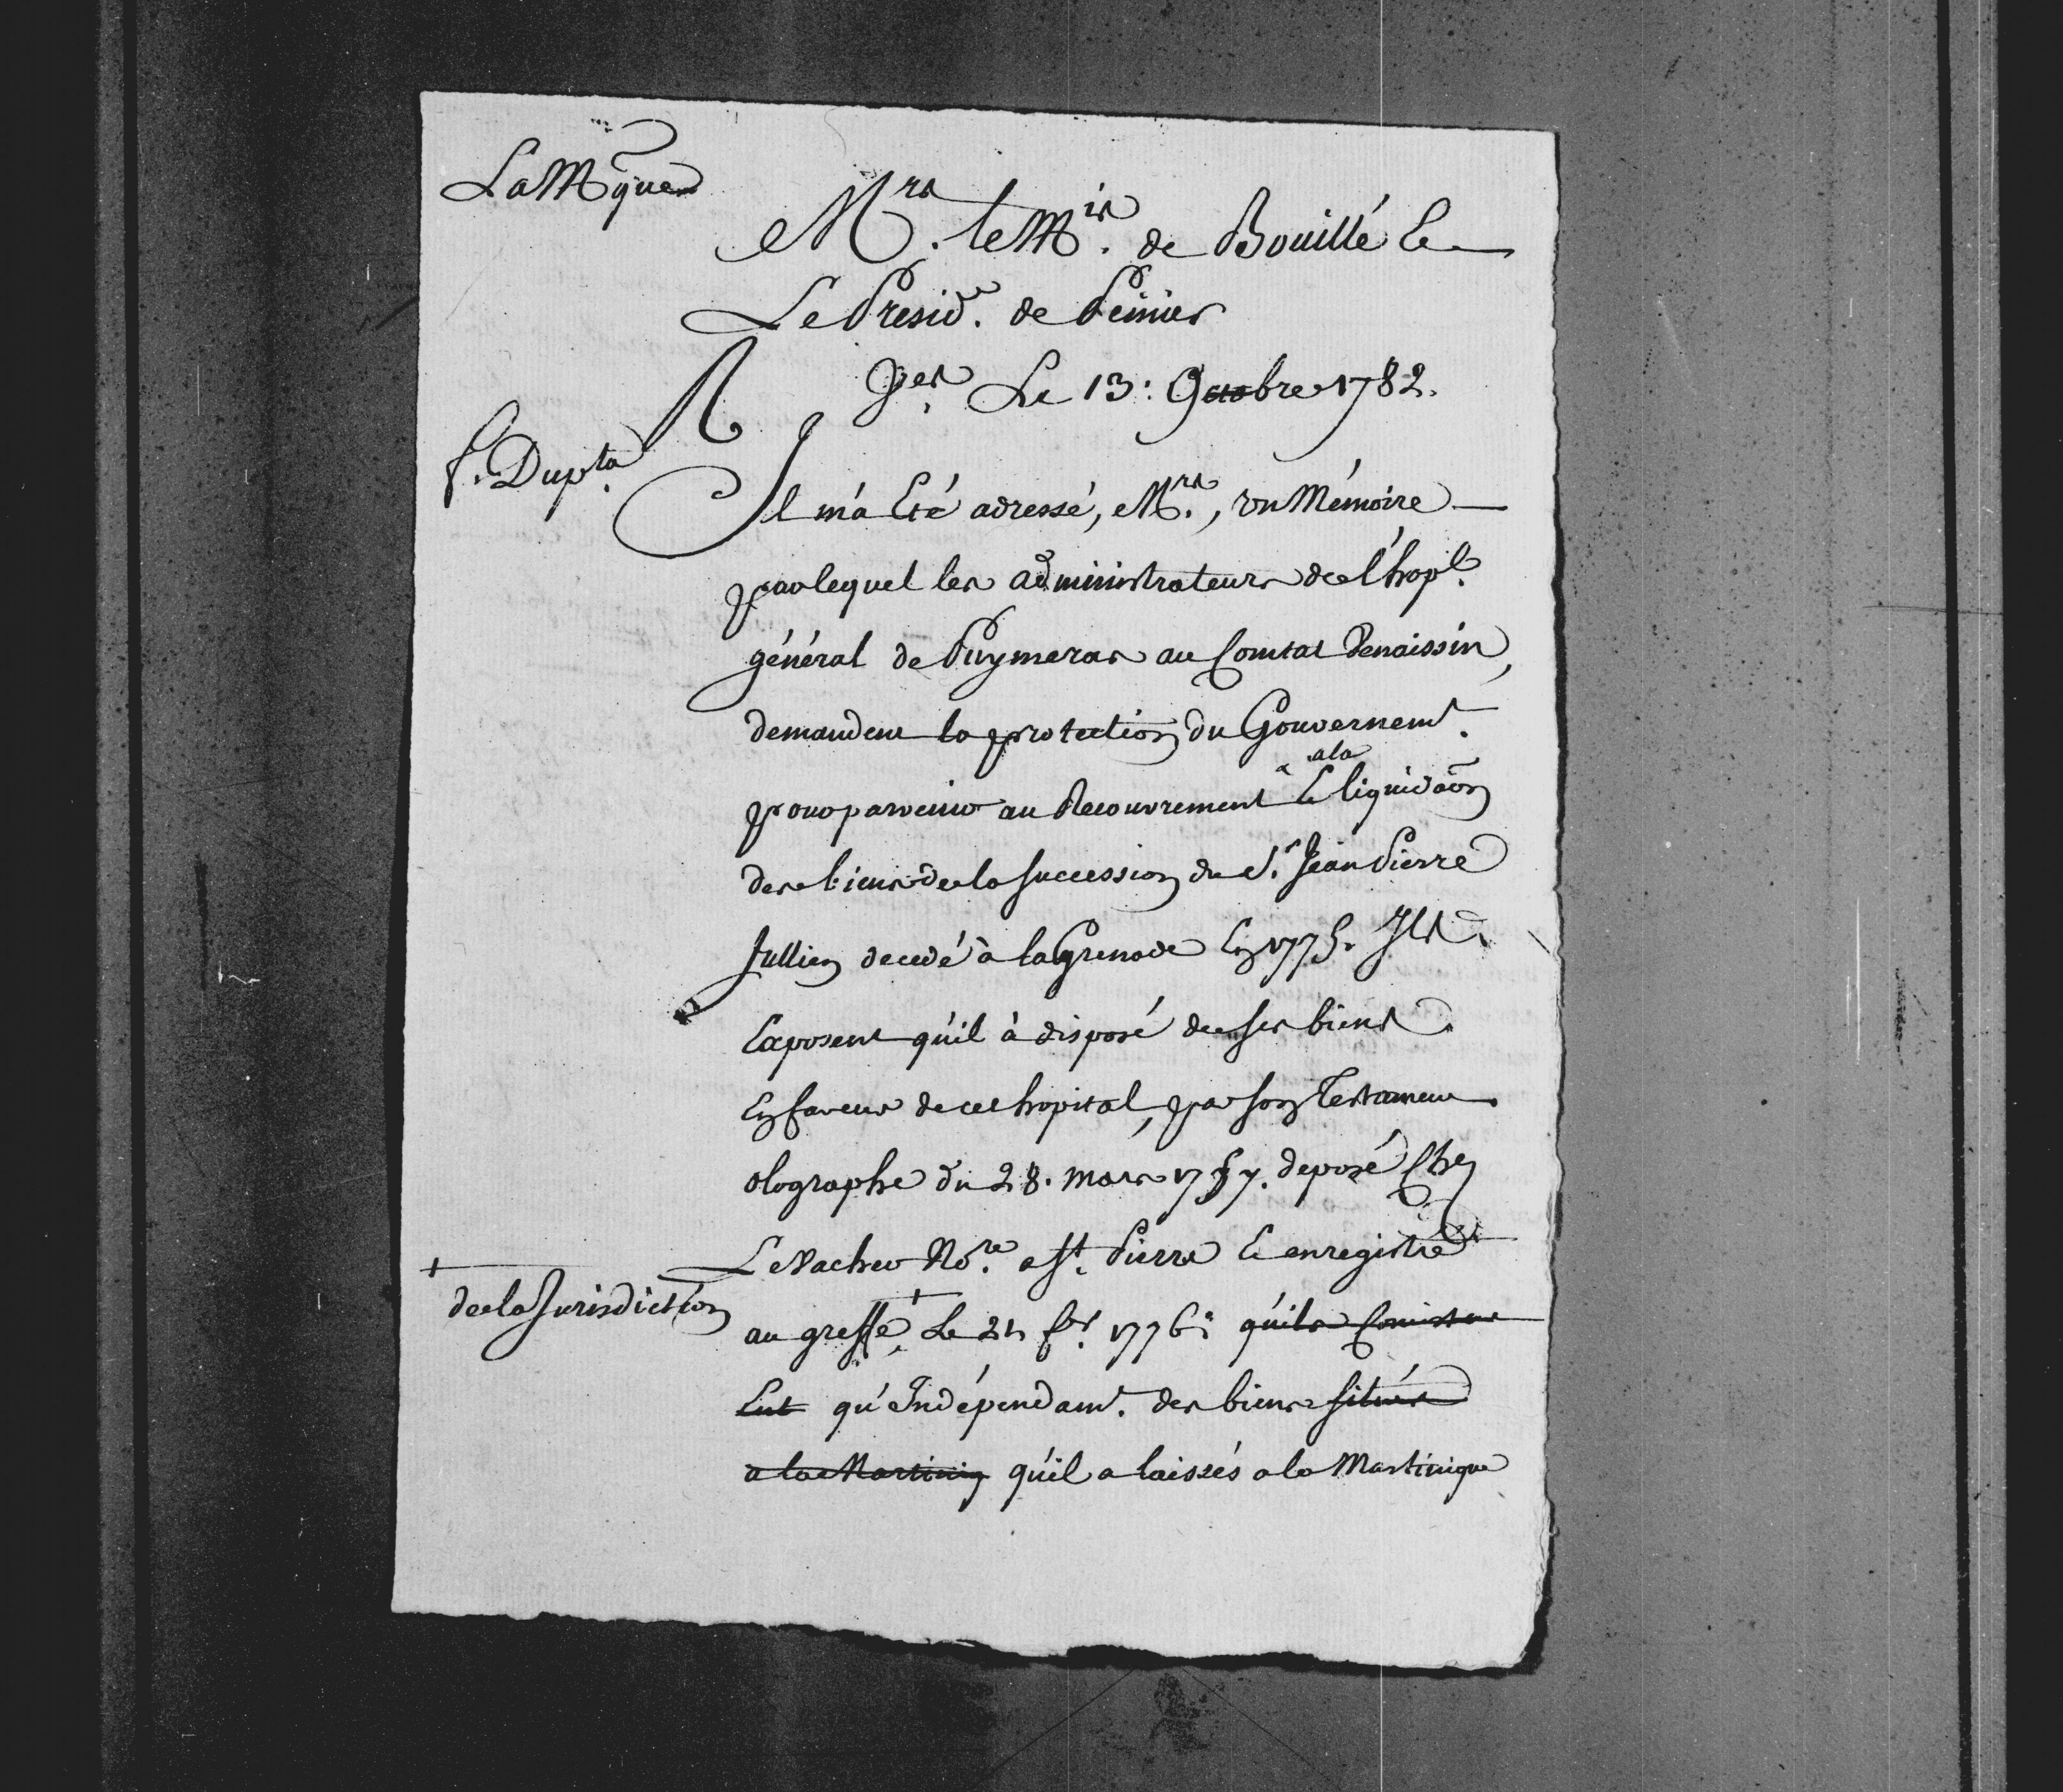 La Mque
Mrs. le Mis. de Bouillé Et
Le Présidt. de Peinier
Ver. Le 13: 9bre 1782.
P. Dupta.
Il m'a Eté adressé, Mrs., un Mémoire
par lequel les administrateurs de l'hopl.
général de Puymeras au Comtat Venaissin,
demandent la protection du Gouvernemt.
pour parvenir au Recouvrement Et a la liquidaon
des biens de la succession du Sr. Jean Pierre
Jullien decedé à la Grenade En 1775. Ils
Exposent qu'il à disposé de ses biens
En faveur de cet hopital, par son Testament
olographe du 28. mars 1757. deposé chez
Le Vacher Nore. a St. Pierre Et enregistré
+ de la Jurisdiction
au greffe + Le 21 fer. 1776: qu'ils Consistent
Ent qu'Indépendamt. des biens situés
a la Martiniq qu'il a laissés a la Martinique